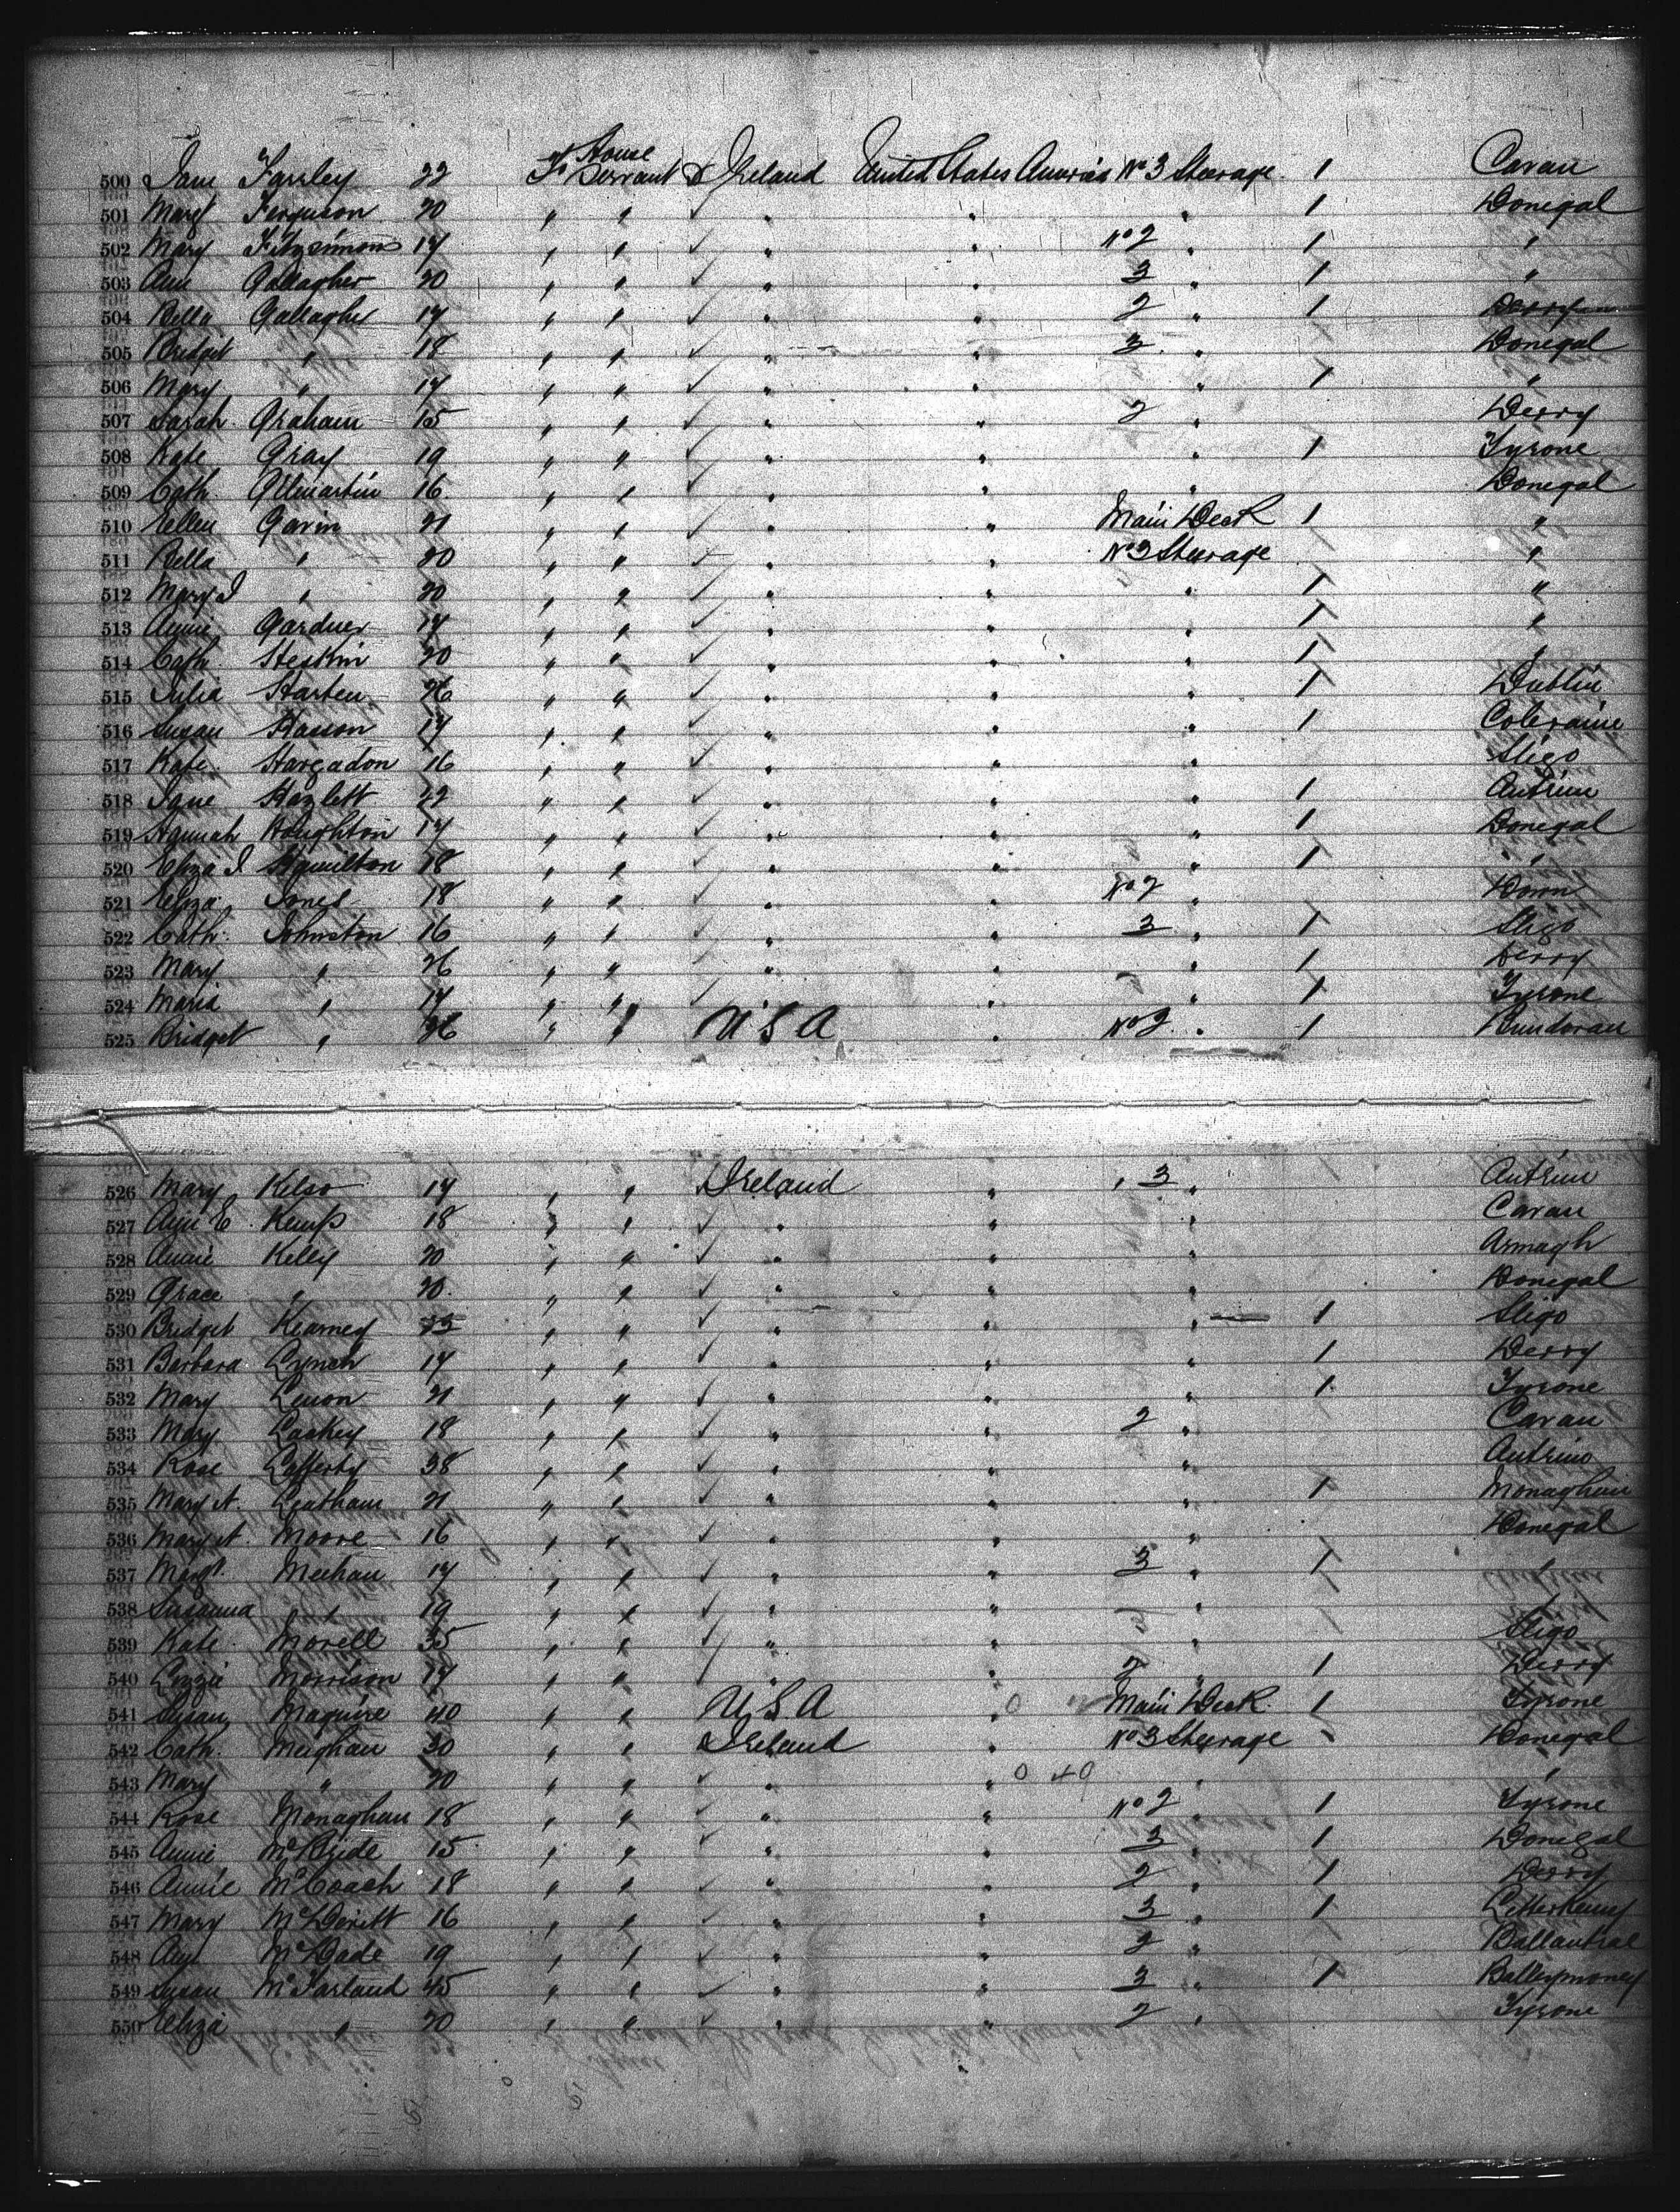 500 Jane Farley 22 F House Servant Ireland United States America No 3 Steerage 1 Cavan
501 Margt Ferguson 20 " " ✓ " " " 1 Donegal
502 Mary Fitzsimons 17 " " ✓ " " No 2 " 1 "
503 Ann Gallagher 20 " " ✓ " " 3 " 1 "
504 Bella Gallagher 17 " " ✓ " " 2 " 1
505 Bridget " 18 " " ✓ " " 3 " Donegal
506 Mary " 17 " " ✓ " " " 1 "
507 Sarah Graham 15 " " ✓ " " 2 " Derry
508 Kate Gray 19 " " ✓ " " " 1 Tyrone
509 Cath. Gilmartin 16 " " ✓ " " " Donegal
510 Ellen Gavin 21 " " ✓ " " Main Deck 1 "
511 Bella " 20 " " ✓ " " No 3 Steerage "
512 Mary J " 20 " " ✓ " " " 1 "
513 Annie Gardner 17 " " ✓ " " " 1 "
514 Cath. Heskin 20 " " ✓ " " " 1 "
515 Julia Harten 26 " " ✓ " " " 1 Dublin
516 Susan Hasson 17 " " ✓ " " " 1 Coleraine
517 Kate Hargadon 16 " " ✓ " " " Sligo
518 Jane Hazlett 22 " " ✓ " " " 1 Antrim
519 Hannah Houghton 17 " " ✓ " " " 1 Donegal
520 Eliza J Hamilton 18 " " ✓ " " " 1 "
521 Eliza Jones 18 " " ✓ " " No 2 " Down
522 Cath. Johnston 16 " " ✓ " " 3 " 1 Sligo
523 Mary " 26 " " ✓ " " " 1 Derry
524 Maria " 17 " " ✓ " " " 1 Tyrone
525 Bridget " 26 " " U S A " No 2 " 1 Bundoran
526 Mary Kelso 17 " " Ireland " " 3 " Antrim
527 Ann E Kemp 18 " " ✓ " " " Cavan
528 Annie Kelly 20 " " ✓ " " " Armagh
529 Grace " 20 " " ✓ " " " Donegal
530 Bridget Kearney " " ✓ " " " 1 Sligo
531 Barbara Lynch 17 " " ✓ " " " 1 Derry
532 Mary Lenon 21 " " ✓ " " " 1 Tyrone
533 Mary Laskey 18 " " ✓ " " 2 " Cavan
534 Rose Lafferty 38 " " ✓ " " " Antrim
535 Mary A. Leatham 21 " " ✓ " " " 1 Monaghan
536 Mary A. Moore 16 " " ✓ " " " Donegal
537 Margt. Meehan 17 " " ✓ " " 3 " 1 "
538 Susanna " 19 " " ✓ " " "
539 Kate Morell 35 " " ✓ " " " Sligo
540 Lizzie Morrison 17 " " ✓ " " 2 " 1 Derry
541 Susan Maguire 40 " " U.S.A " Main Deck 1 Tyrone
542 Cath. Meighan 30 " " Ireland " No 3 Steerage Donegal
543 Mary " 20 " " ✓ " " " "
544 Rose Monaghan 18 " " ✓ " " No 2 " 1 Tyrone
545 Annie McBride 15 " " ✓ " " 3 " 1 Donegal
546 Annie McCoach 18 " " ✓ " " 2 " 1 Derry
547 Mary McDevitt 16 " " ✓ " " 3 " 1 Letterkenny
548 Ann McDade 19 " " ✓ " " 2 "
549 Susan McFarland 45 " " ✓ " " 3 " 1 Ballymoney
550 Eliza " 20 " " ✓ " " 2 " Tyrone